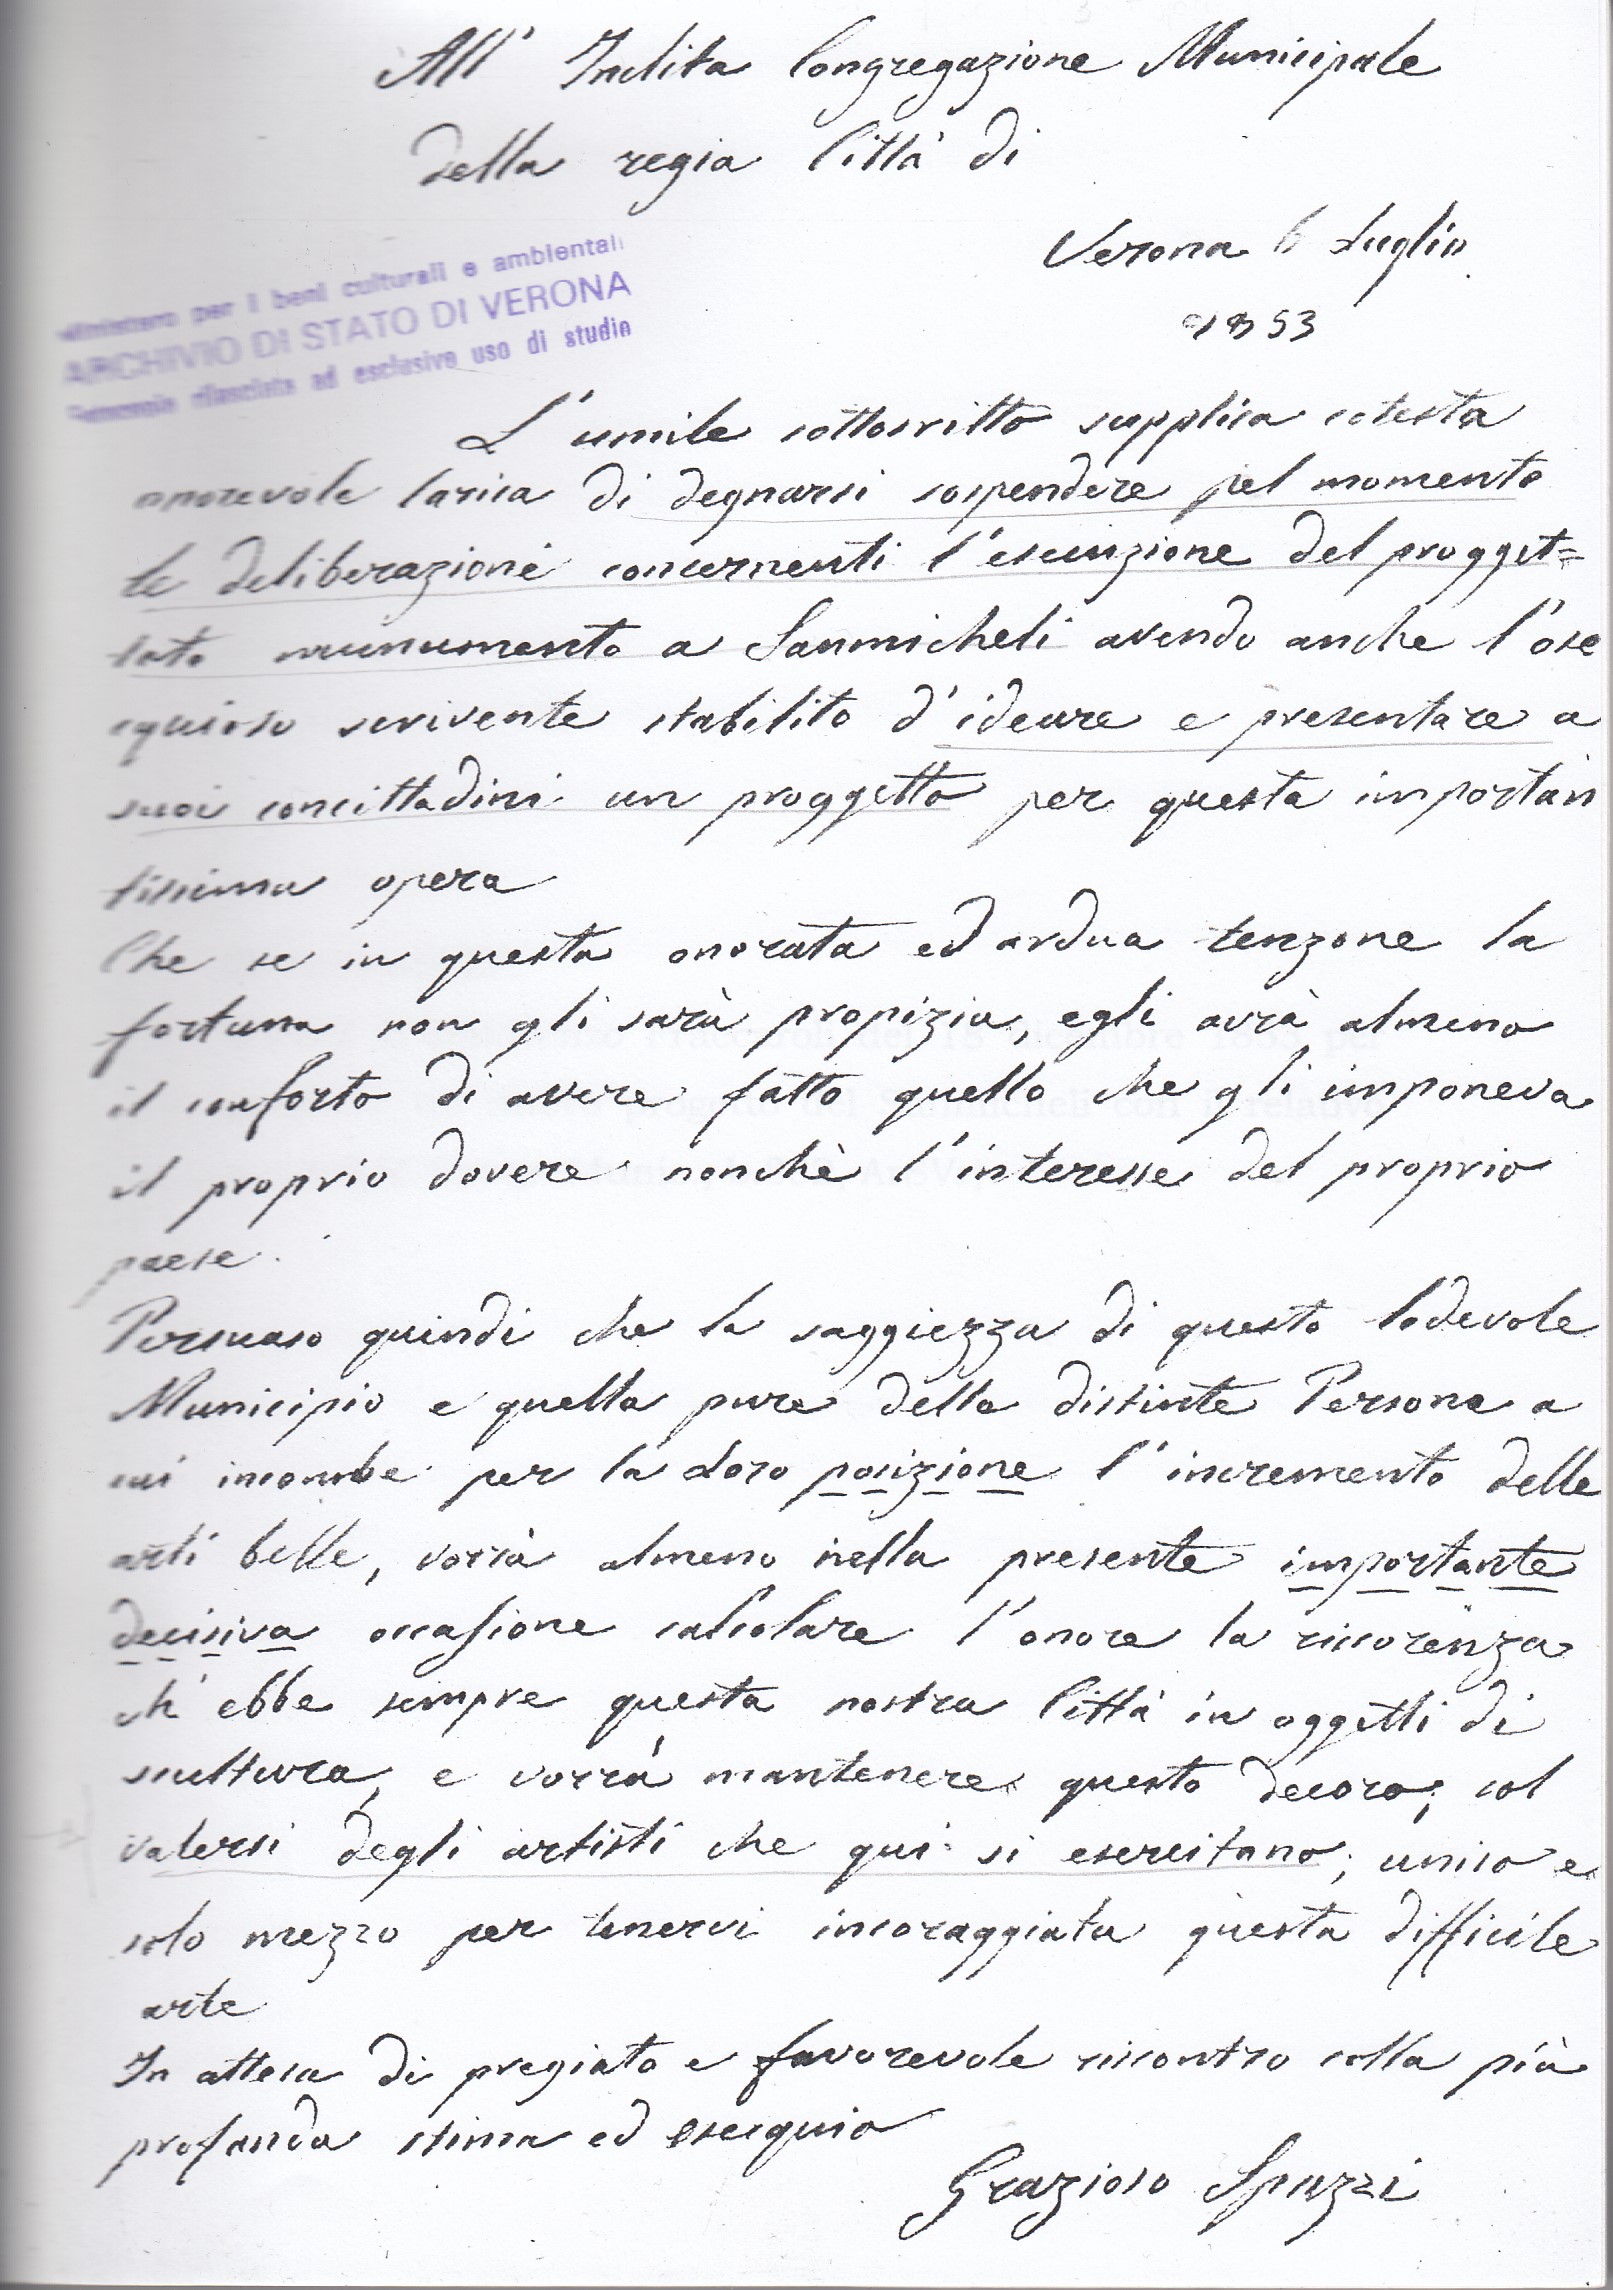 All' Inclita Congregazione Municipale
della regia Città di
Verona 6 Luglio
1853
Ministero per i beni culturali e ambientali
ARCHIVIO DI STATO DI VERONA
rilasciata ad esclusivo uso di studio
L'umile sottoscritto supplica cotesta
onorevole Carica di degnarsi sospendere pel momento
le deliberazioni concernenti l'esecuzione del progget=
tato munumento a Sanmicheli avendo anche l'osse
equioso scrivente stabilito d'ideare e presentare a
suoi concittadini un proggetto per questa importan
tissima opera
Che se in questa onorata ed ardua tenzone la
fortuna non gli sarà propizia, egli avrà almeno
il conforto di avere fatto quello che gli imponeva
il proprio dovere nonchè l'interesse del proprio
paese.
Persuaso quindi che la saggiezza di questo lodevole
Municipio e quella pure delle distinte Persone a
cui incombe per la Loro posizione l'incremento delle
arti belle, vorrà almeno nella presente importante
decisiva occasione calcolare l'onore la ricorenza
ch'ebbe sempre questa nostra Città in oggetti di
scultura, e vorrà mantenere questo decoro; col
valersi degli artisti che qui si esercitano; unico e
solo mezzo per tenervi incoraggiata questa difficile
arte
In attesa di pregiato e favorevole riscontro colla più
profonda stima ed ossequio
Grazioso Spazzi